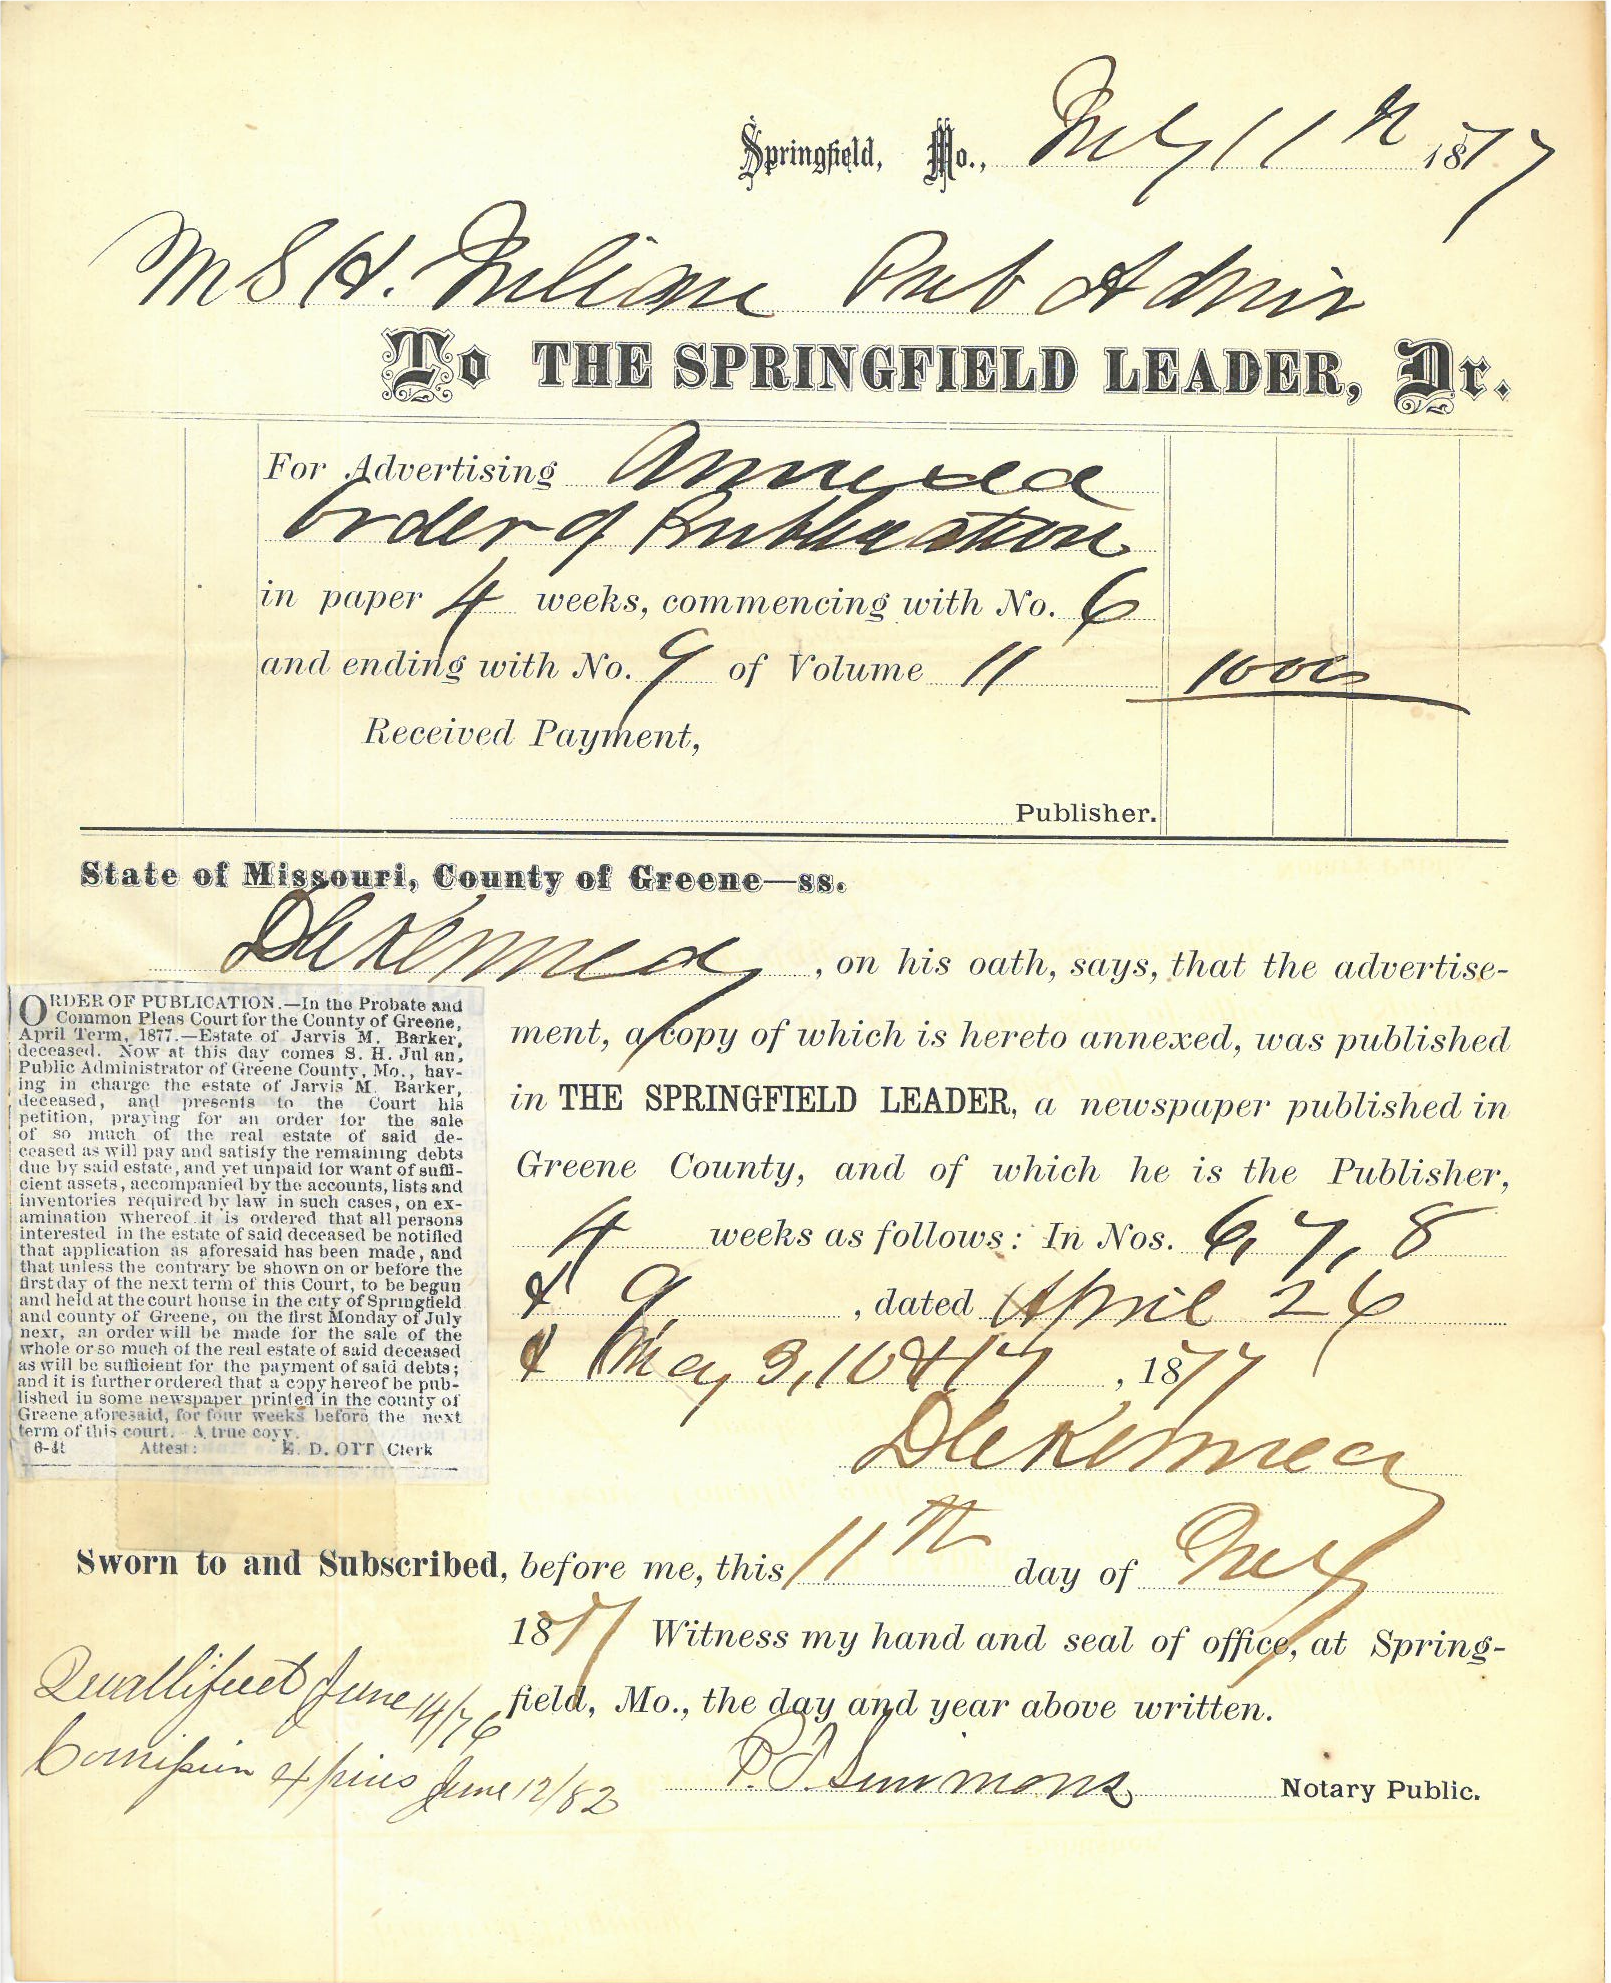 Springfield, Mo., July 11th 1877
M S H. Julian Pub Admir
To THE SPRINGFIELD LEADER, Dr.
For Advertising Annexed
Order of Publication
in paper 4 weeks, commencing with No. 6
and ending with No. 9 of Volume 11 1000
Received Payment,
Publisher.
State of Missouri, County of Greene—ss.
D C Kennedy, on his oath, says, that the advertise-
ment, a copy of which is hereto annexed, was published
in THE SPRINGFIELD LEADER, a newspaper published in
Greene County, and of which he is the Publisher,
4 weeks as follows: In Nos. 6, 7, 8
& 9, dated April 26
& May 3, 10 & 17, 1877
D C Kennedy
ORDER OF PUBLICATION.—In the Probate and
Common Pleas Court for the County of Greene,
April Term, 1877.—Estate of Jarvis M. Barker,
deceased. Now at this day comes S. H. Jul an,
Public Administrator of Greene County, Mo., hav-
ing in charge the estate of Jarvis M. Barker,
deceased, and presents to the Court his
petition, praying for an order for the sale
of so much of the real estate of said de-
ceased as will pay and satisfy the remaining debts
due by said estate, and yet unpaid for want of suffi-
cient assets, accompanied by the accounts, lists and
inventories required by law in such cases, on ex-
amination whereof it is ordered that all persons
interested in the estate of said deceased be notified
that application as aforesaid has been made, and
that unless the contrary be shown on or before the
first day of the next term of this Court, to be begun
and held at the court house in the city of Springfield
and county of Greene, on the first Monday of July
next, an order will be made for the sale of the
whole or so much of the real estate of said deceased
as will be sufficient for the payment of said debts;
and it is further ordered that a copy hereof be pub-
lished in some newspaper printed in the county of
Greene aforesaid, for four weeks before the next
term of this court. A true copy.
6-4t Attest: E. D. OTT Clerk
Sworn to and Subscribed, before me, this 11th day of July
1877 Witness my hand and seal of office, at Spring-
field, Mo., the day and year above written.
Quallified June 14/76
Comission expires June 12/82
P. T. Simmons Notary Public.